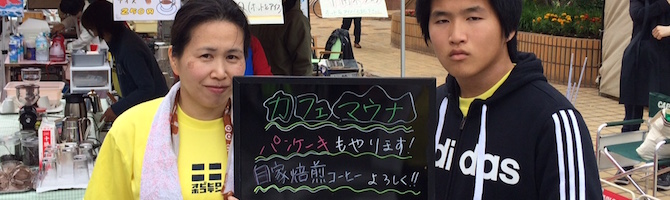 250円
カフェマウナ
パンケーキもやります!
自家焙煎コーヒー よろしく!!
adidas